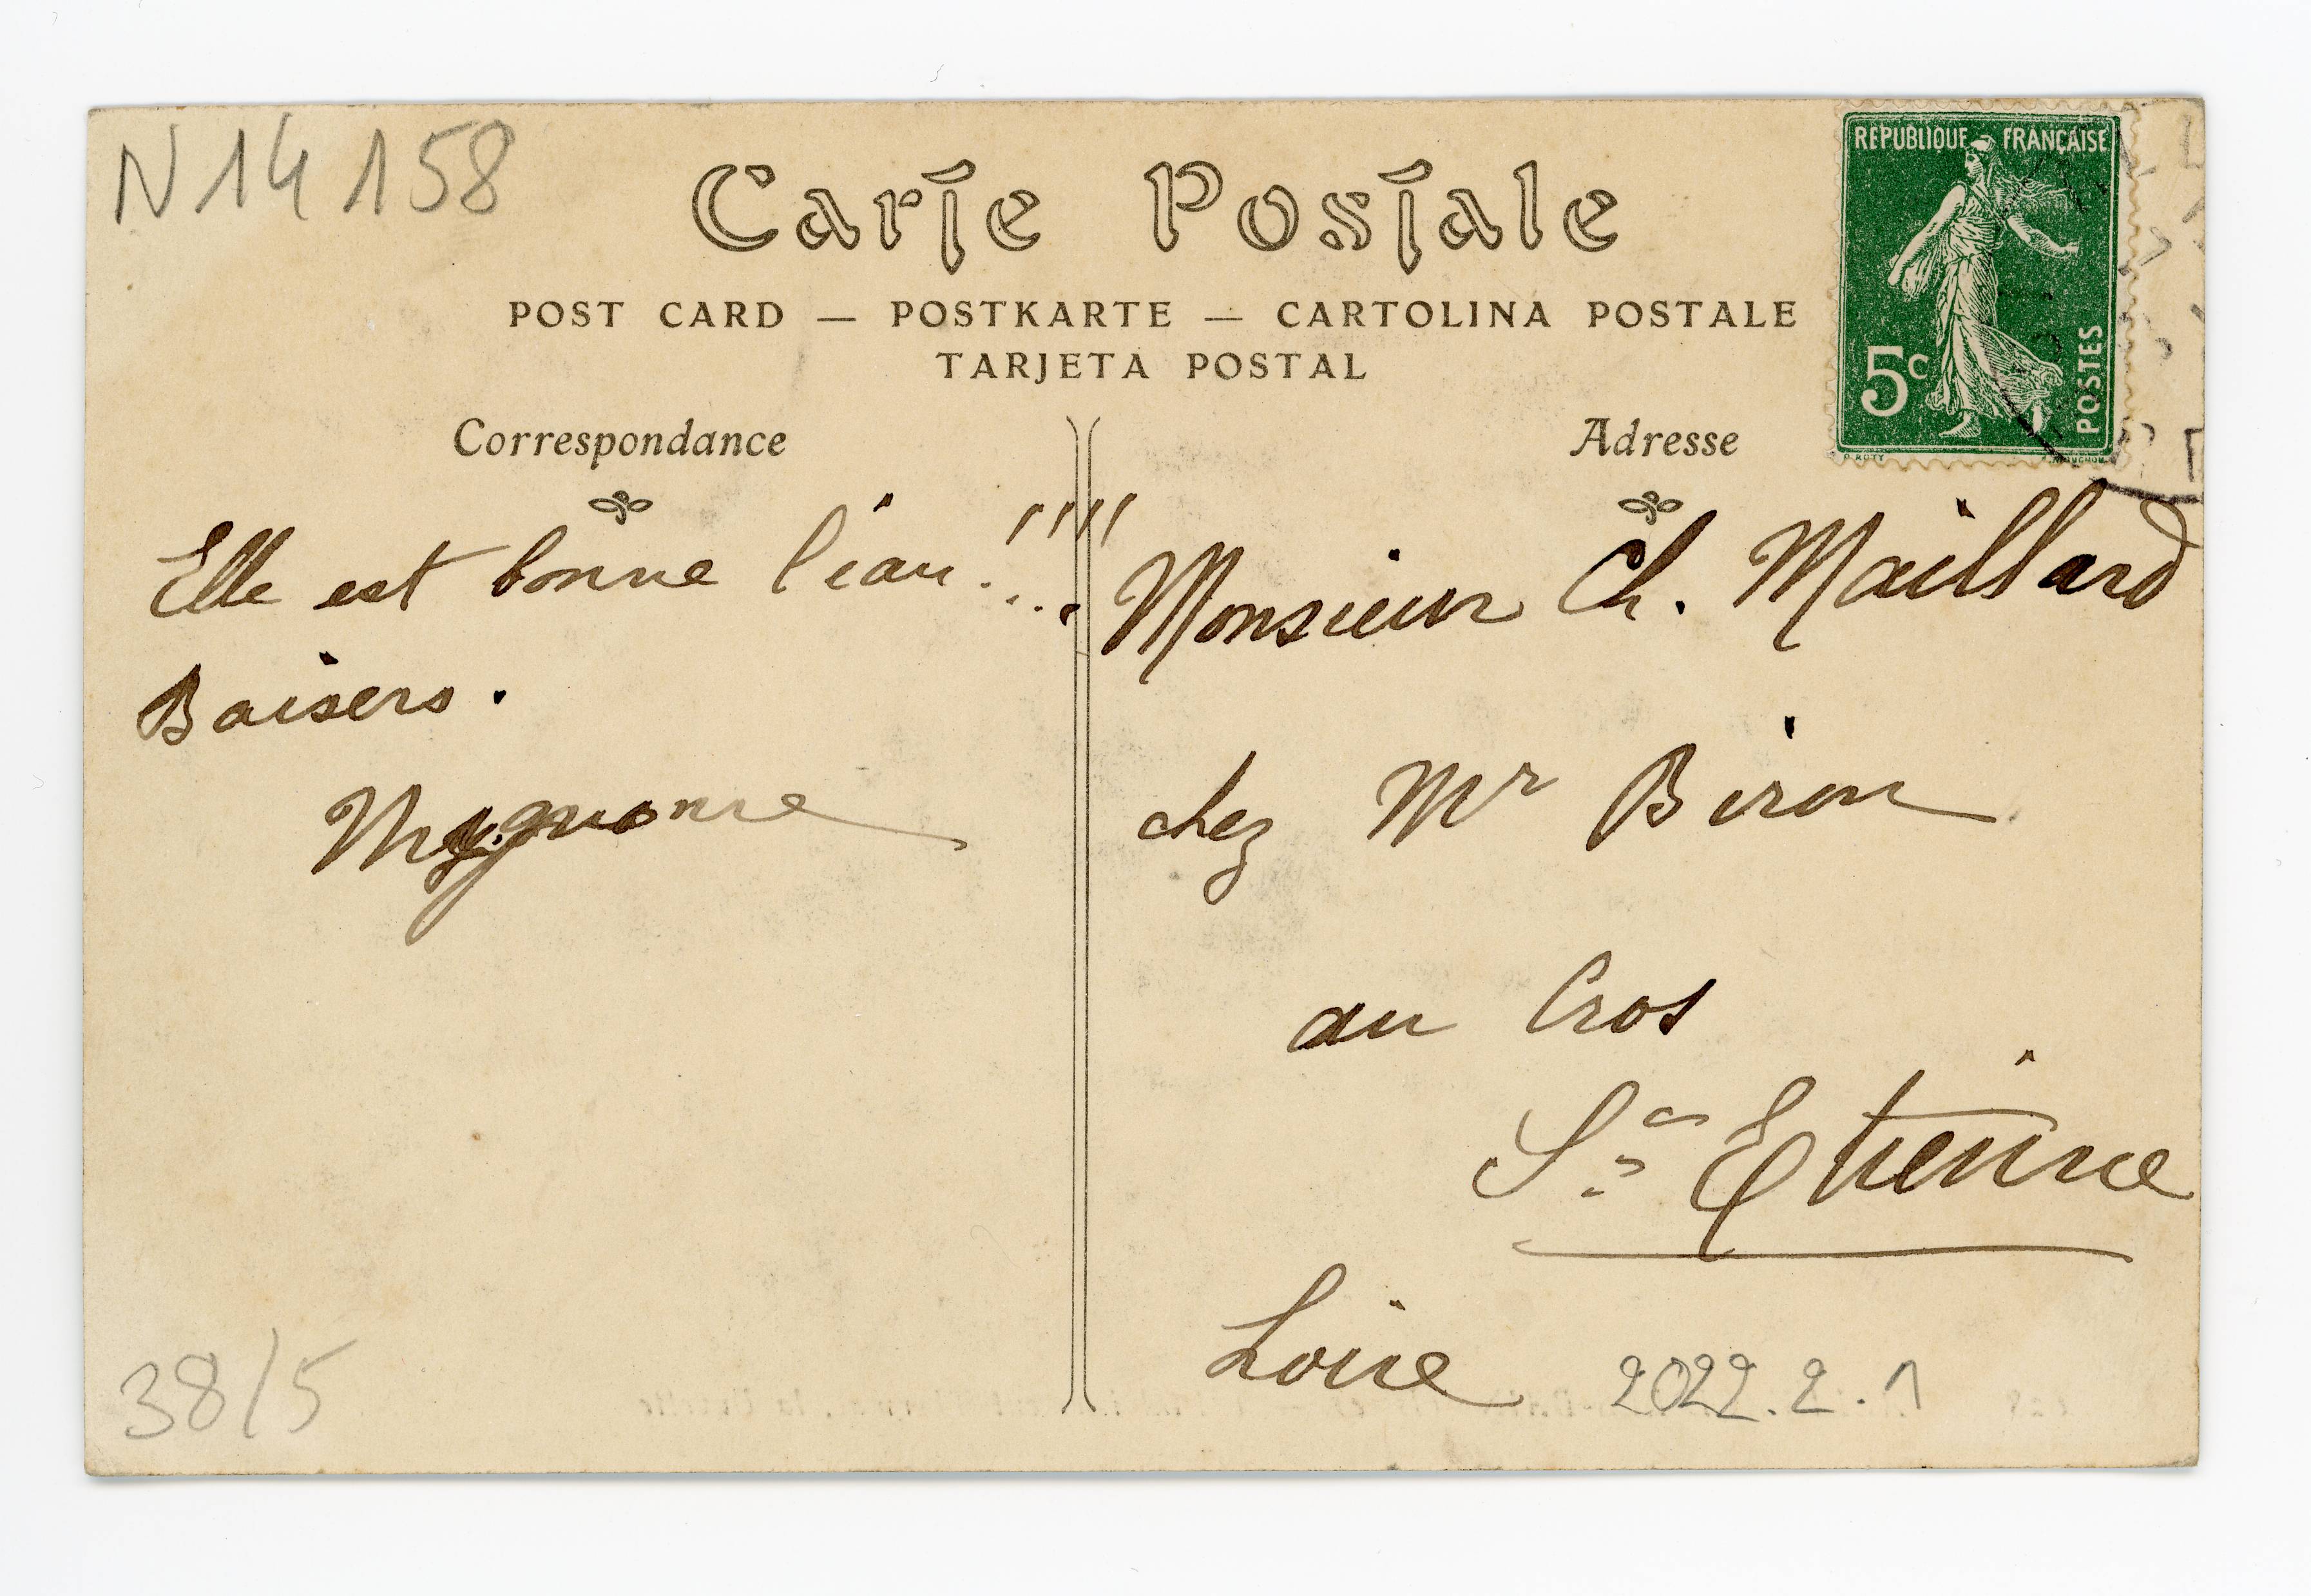 N 14 158
Carte Postale
POST CARD — POSTKARTE — CARTOLINA POSTALE
TARJETA POSTAL
REPUBLIQUE FRANÇAISE
5c
POSTES
Correspondance
Adresse
Elle est bonne l'eau!!!!
Baisers.
Monsieur Ch. Maillard
chez Mr Biron
au Cros
St Etienne
Loire
2022.2.1
38/5